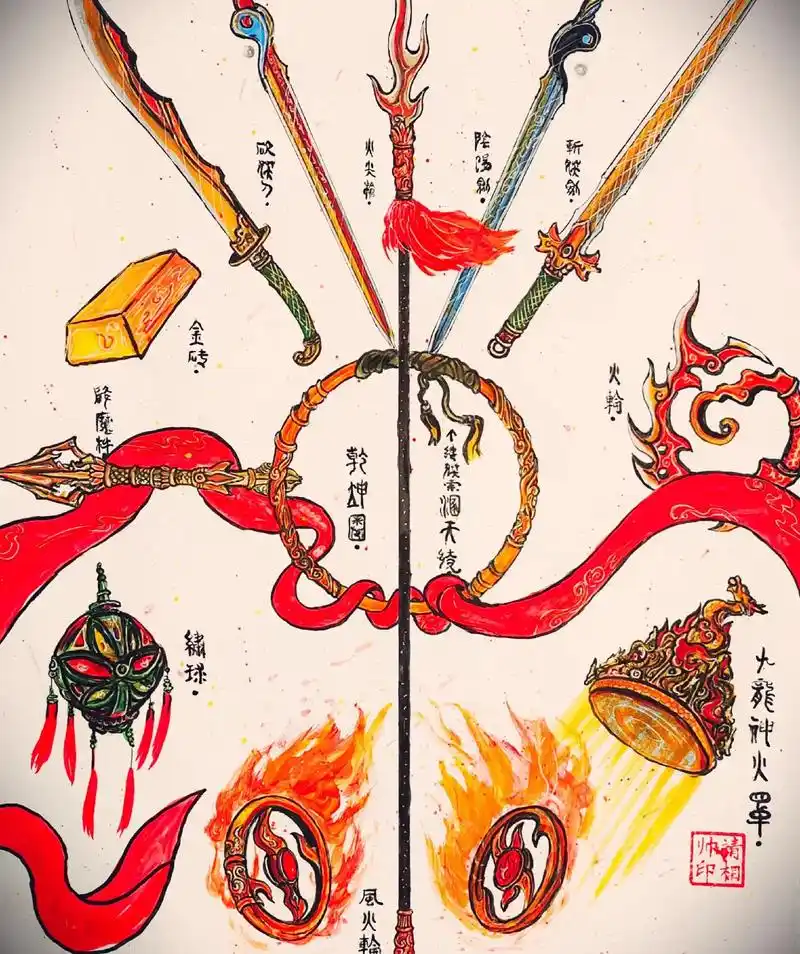 砍妖刀
火尖槍
陰陽劍
斬妖劍
金磚
降魔杵
火輪
乾坤圈
縛妖索
混天綾
繡球
九龍神火罩
風火輪